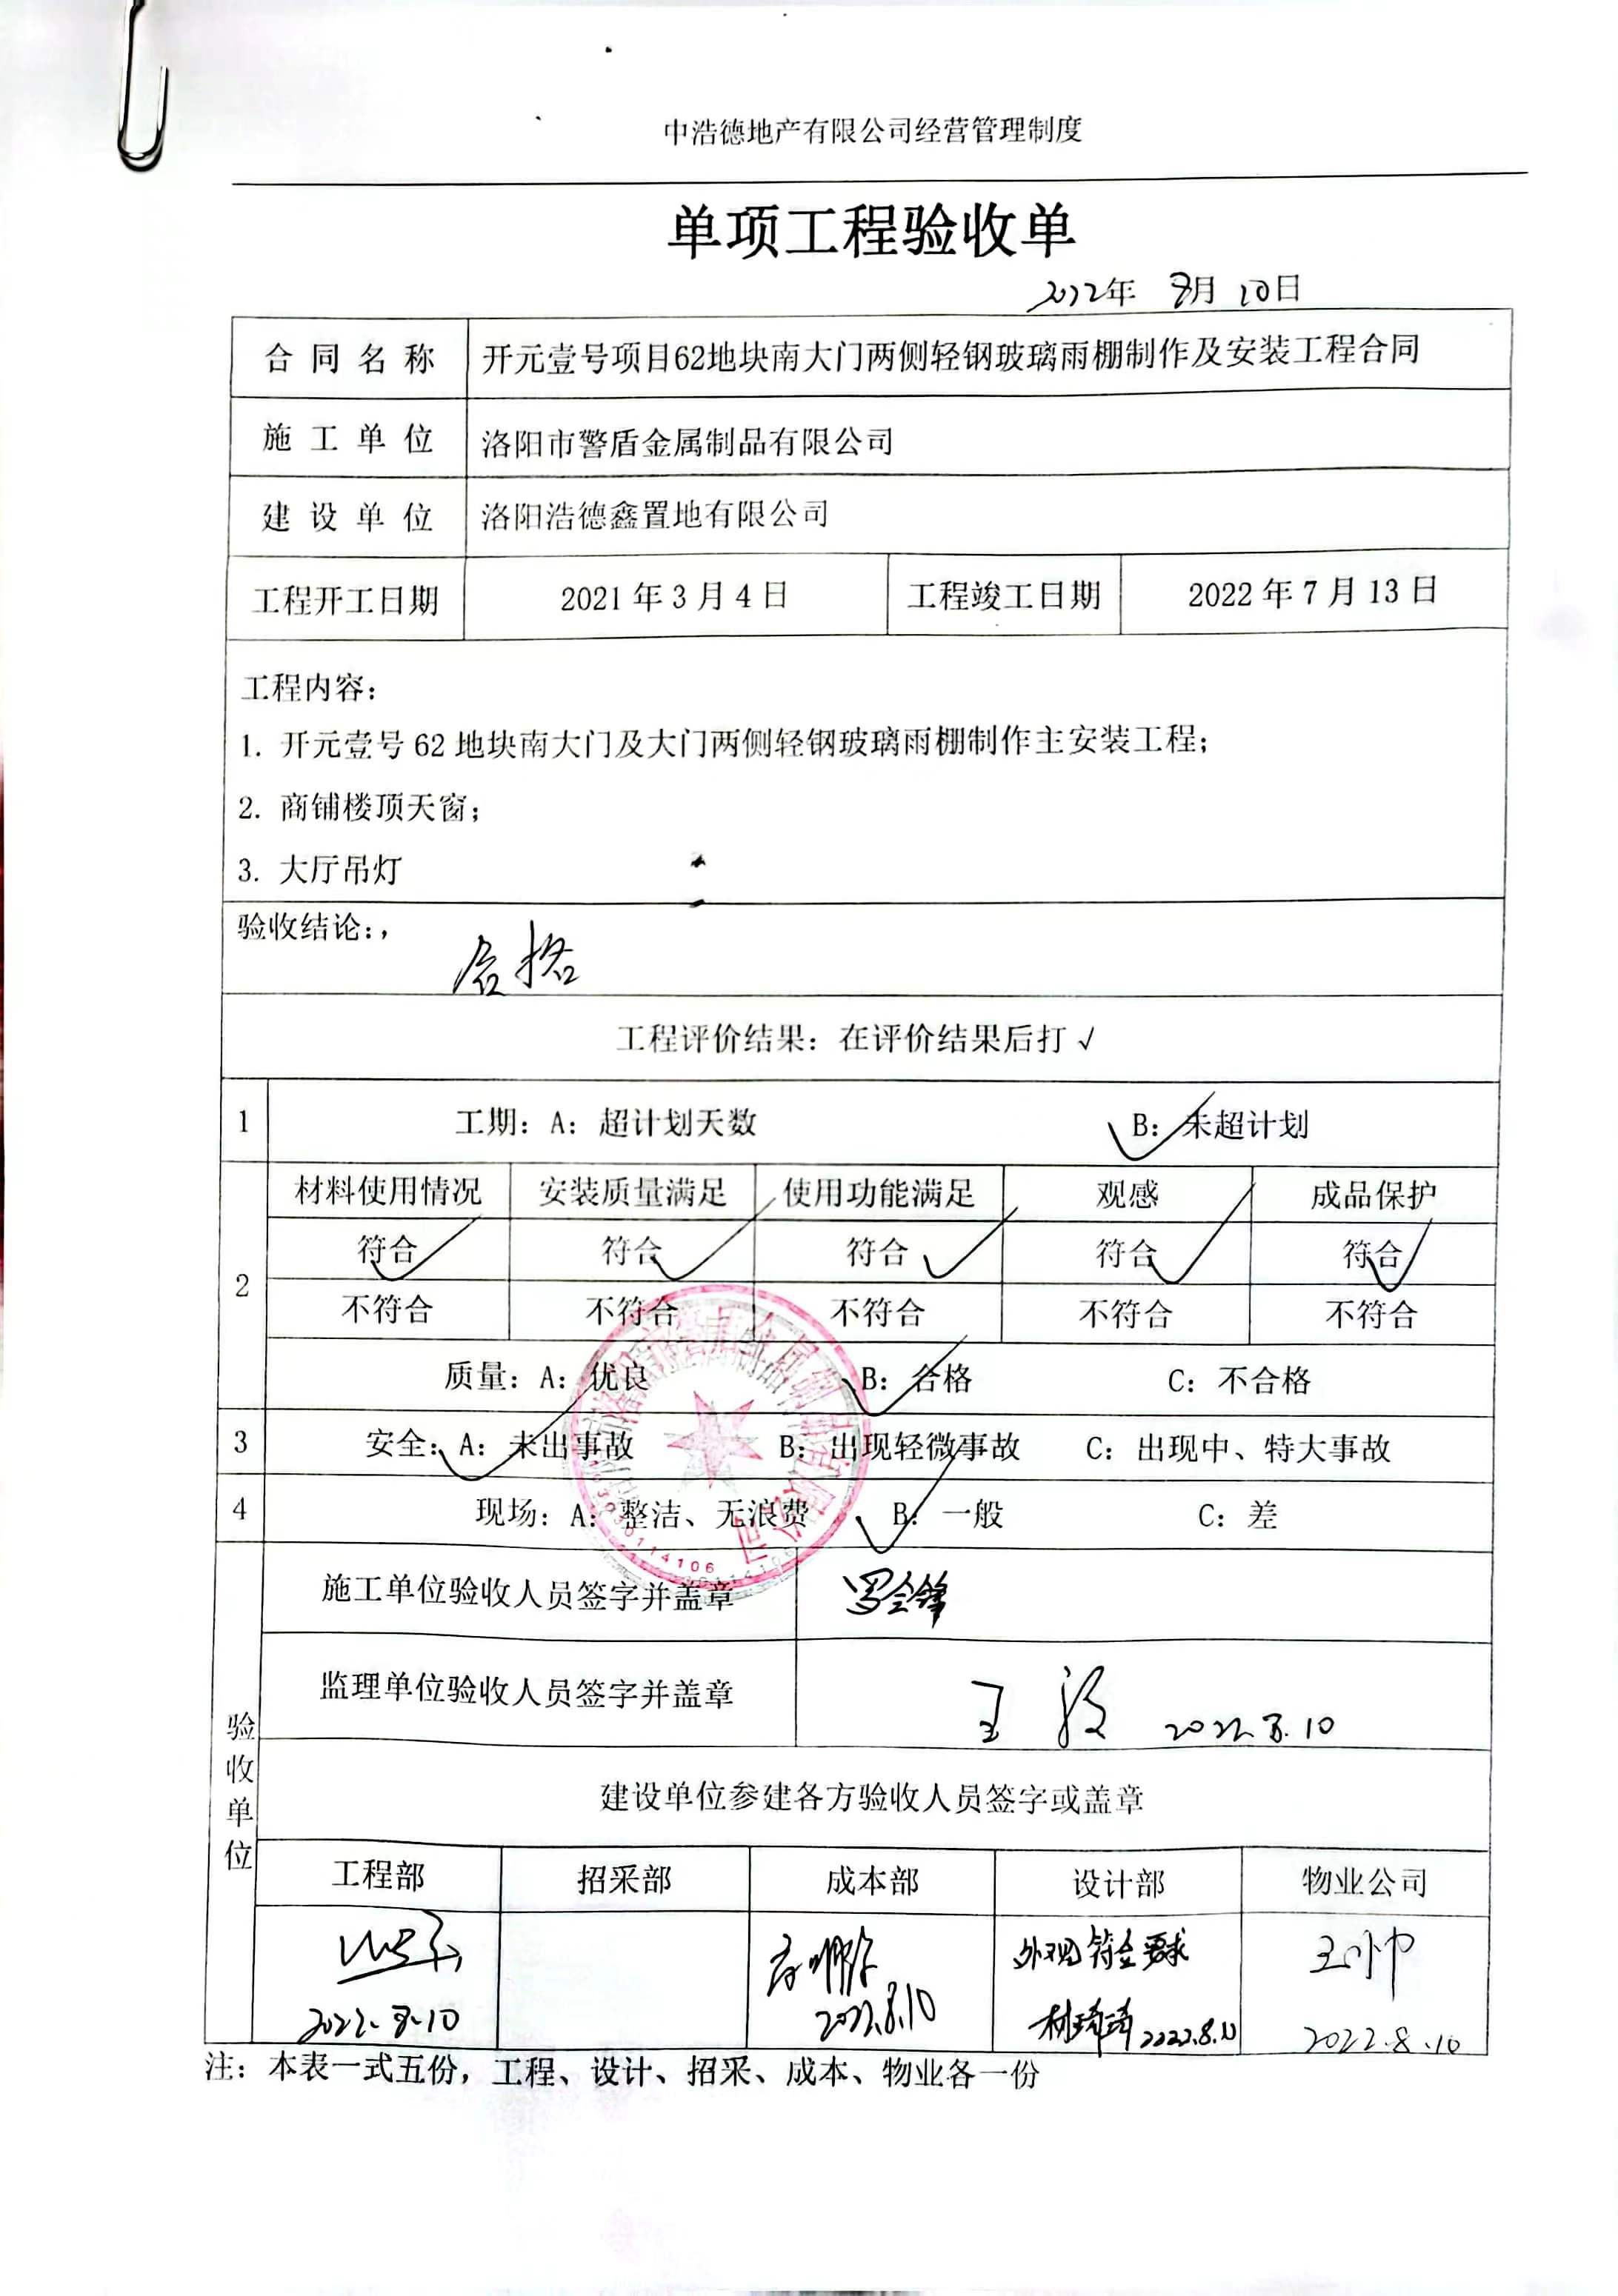 中浩德地产有限公司经营管理制度
单项工程验收单
2022年 8月 10日
合同名称 开元壹号项目62地块南大门两侧轻钢玻璃雨棚制作及安装工程合同
施工单位 洛阳市警盾金属制品有限公司
建设单位 洛阳浩德鑫置地有限公司
工程开工日期 2021年3月4日 工程竣工日期 2022年7月13日
工程内容：
1. 开元壹号62地块南大门及大门两侧轻钢玻璃雨棚制作主安装工程；
2. 商铺楼顶天窗；
3. 大厅吊灯
验收结论：，
合格
工程评价结果：在评价结果后打√
1 工期：A：超计划天数 B：未超计划
材料使用情况 安装质量满足 使用功能满足 观感 成品保护
符合 符合 符合 符合 符合
2
不符合 不符合 不符合 不符合 不符合
质量：A：优良 B：合格 C：不合格
3 安全：A：未出事故 B：出现轻微事故 C：出现中、特大事故
4 现场：A：整洁、无浪费 B：一般 C：差
施工单位验收人员签字并盖章
验收单位
监理单位验收人员签字并盖章 王 2022.8.10
建设单位参建各方验收人员签字或盖章
工程部 招采部 成本部 设计部 物业公司
外观符合要求 王帅
2022.8.10 2022.8.10 2022.8.10 2022.8.10
注：本表一式五份，工程、设计、招采、成本、物业各一份